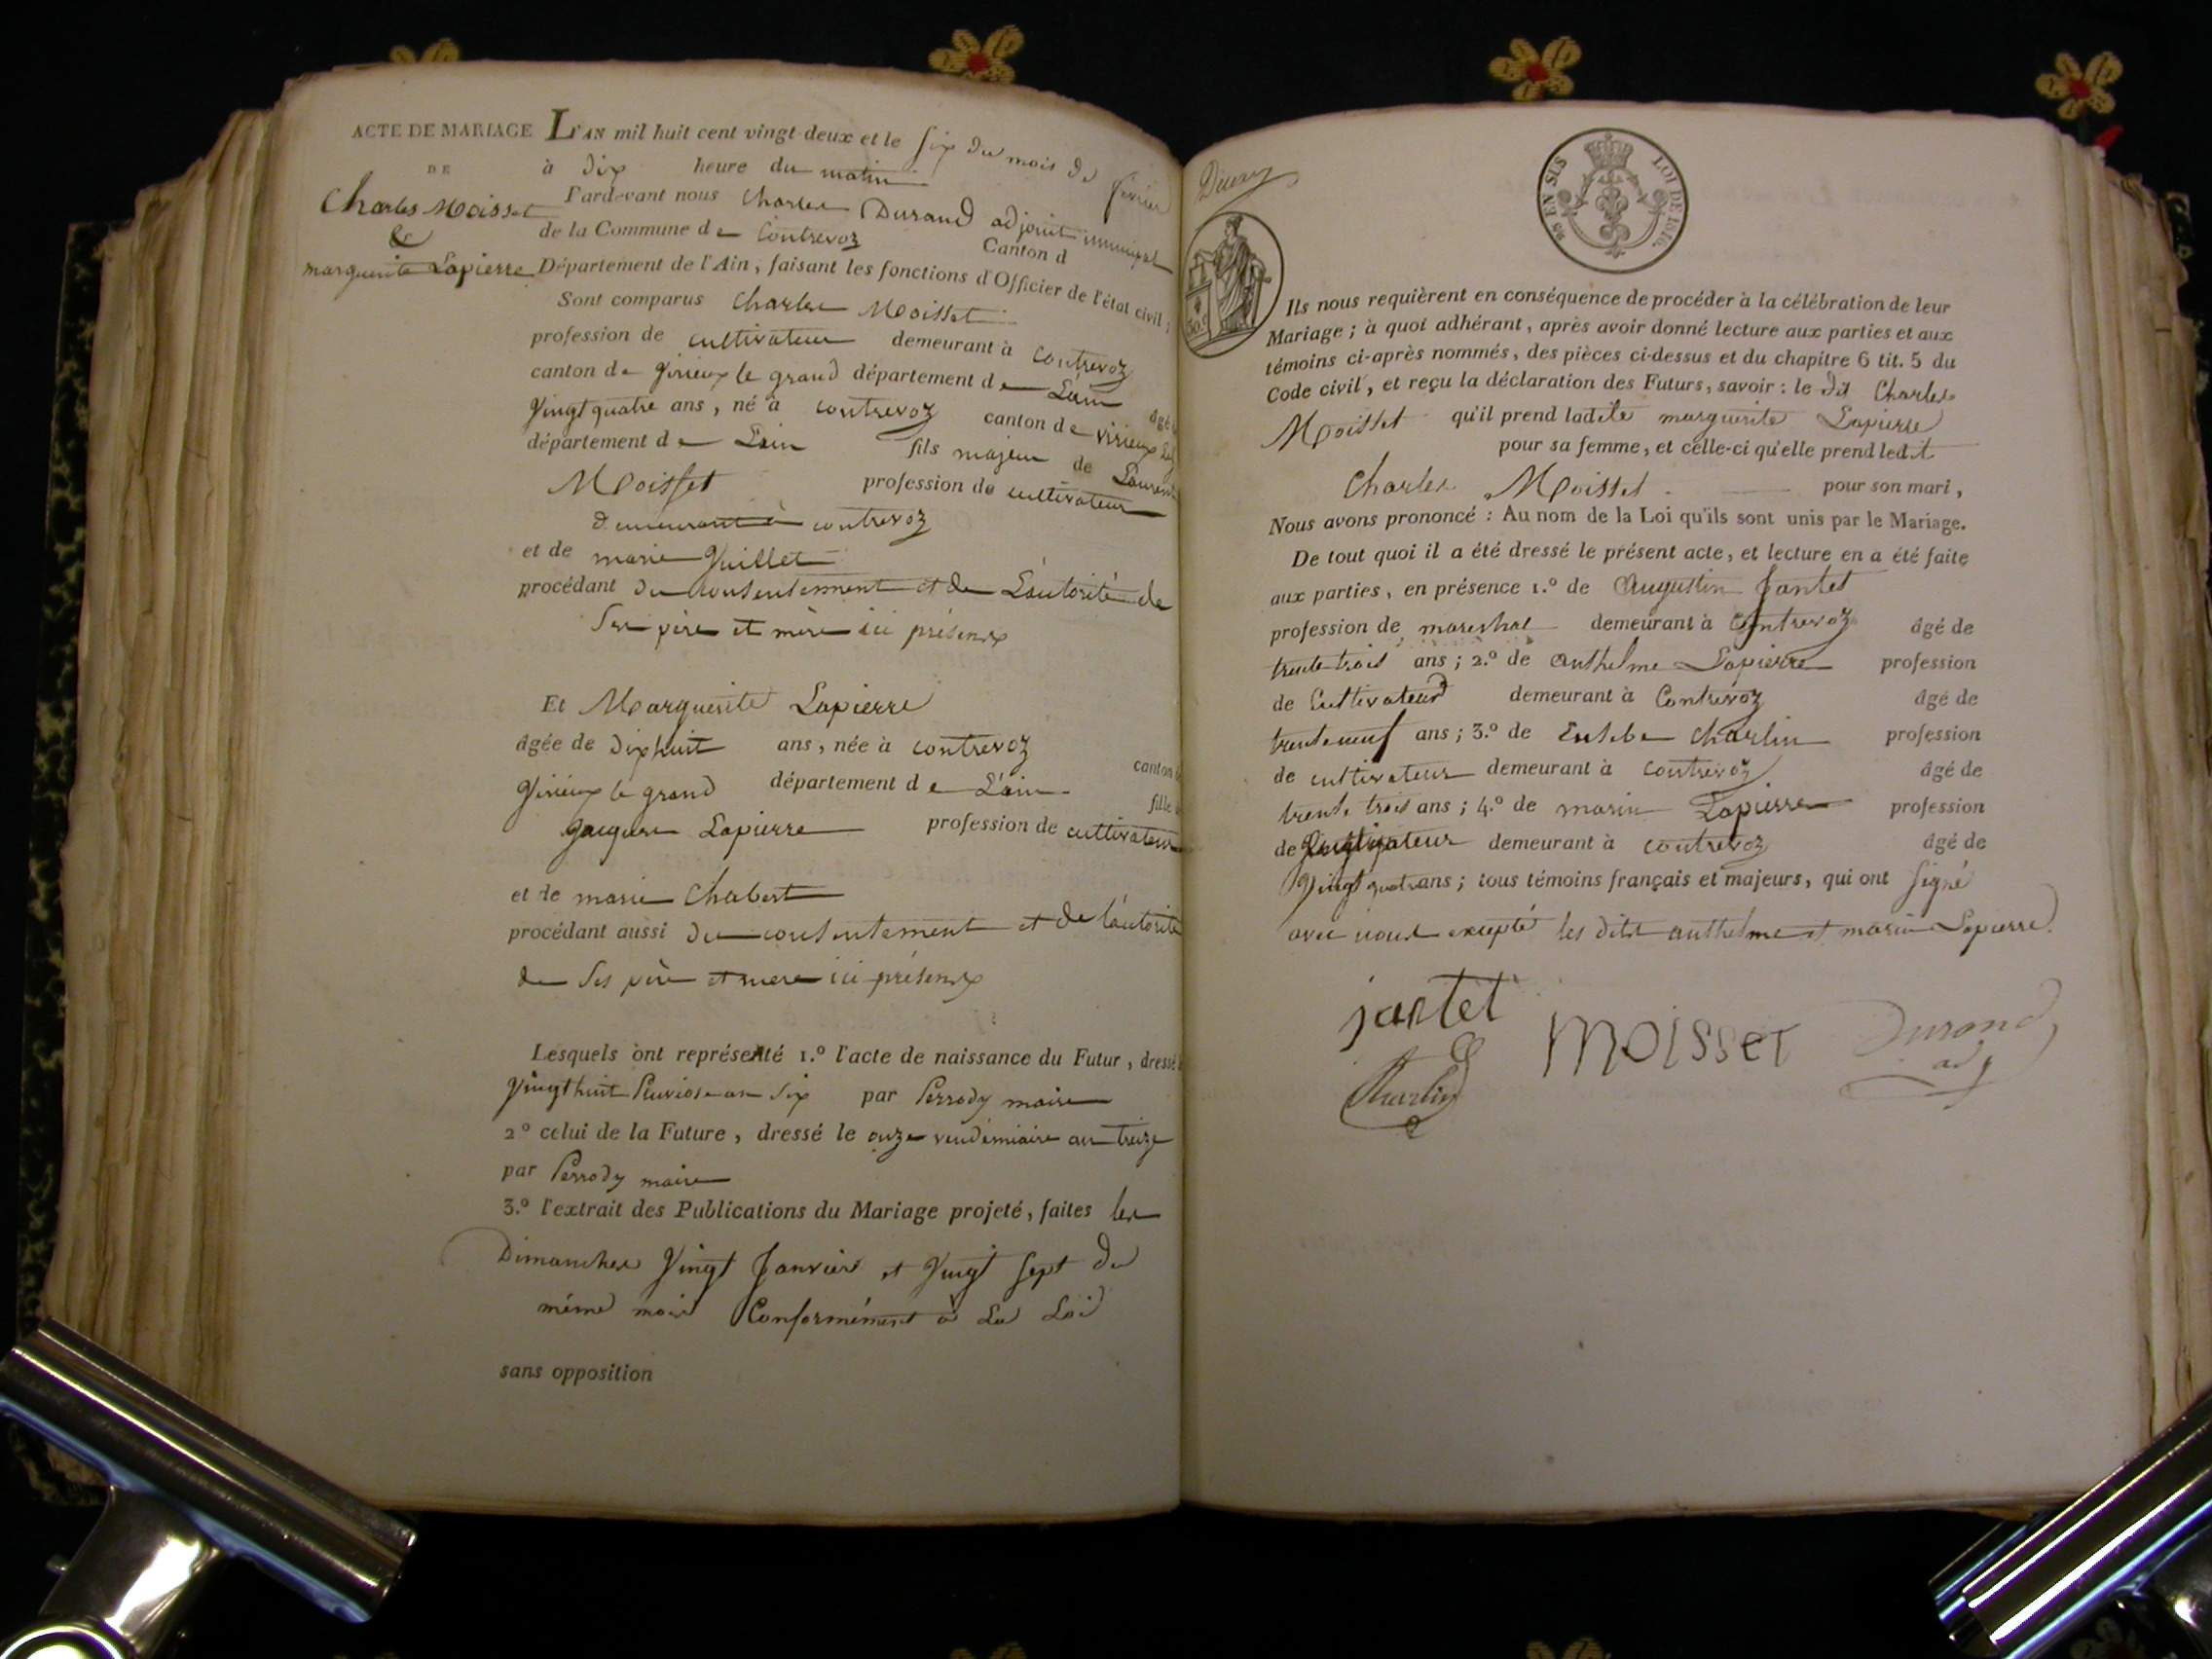 ACTE DE MARIAGE
DE
Charles Moisset
&
marguerite Lapierre
L'AN mil huit cent vingt-deux et le six du mois de février
à dix heure du matin
Pardevant nous Charles Durand adjoint municipal
de la Commune de Contrevoz Canton d
Département de l'Ain, faisant les fonctions d'Officier de l'état civil;
Sont comparus Charles Moisset
profession de cultivateur demeurant à Contrevoz
canton de Virieux le grand département de L'ain âgé
Vingt quatre ans, né à contrevoz canton de virieux
département de L'ain fils majeur de Laurent
Moisset profession de cultivateur
demeurant à contrevoz
et de marie Guillet
procédant du consentement et de L'autorité de
Ses père et mère ici présents
Et Marguerite Lapierre
âgée de dixhuit ans, née à contrevoz canton
Virieux le grand département de L'ain fille
Jacques Lapierre profession de cultivateur
et de marie Chabert
procédant aussi du consentement et de l'autorité
de Ses père et mere ici présents
Lesquels ont représenté 1.º l'acte de naissance du Futur, dressé
Vingthuit Pluviose an Six par Perrody maire
2º celui de la Future, dressé le onze vendémiaire an treize
par Perrody maire
3.º l'extrait des Publications du Mariage projeté, faites les
Dimanches Vingt Janvier et Vingt Sept du
même mois Conformément à La Loi
sans opposition
LOI DE 1816.
50 c
Ils nous requièrent en conséquence de procéder à la célébration de leur
Mariage; à quoi adhérant, après avoir donné lecture aux parties et aux
témoins ci-après nommés, des pièces ci-dessus et du chapitre 6 tit. 5 du
Code civil, et reçu la déclaration des Futurs, savoir: le dit Charles
Moisset qu'il prend ladite marguerite Lapierre
pour sa femme, et celle-ci qu'elle prend ledit
Charles Moisset pour son mari,
Nous avons prononcé: Au nom de la Loi qu'ils sont unis par le Mariage.
De tout quoi il a été dressé le présent acte, et lecture en a été faite
aux parties, en présence 1.º de Augustin Jantet
profession de mareshal demeurant à Contrevoz âgé de
trente-trois ans; 2.º de Anthelme Lapierre profession
de Cultivateur demeurant à Contrevoz âgé de
trenteneuf ans; 3.º de Eusebe Charlin profession
de cultivateur demeurant à contrevoz âgé de
trente trois ans; 4.º de marin Lapierre profession
de cultivateur demeurant à contrevoz âgé de
Vingt quatre ans; tous témoins français et majeurs, qui ont Signé
avec nous excepté les dits anthelme et marin Lapierre.
jantet
Moisset
Durand
adj
Charlin